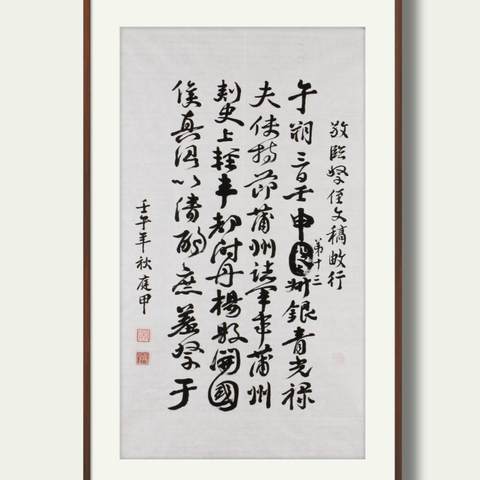 敬臨祭侄文稿數行
午朔三日壬申
第十三
州銀青光祿
夫使持節蒲州諸軍事蒲州
刺史上輕車都尉丹楊縣開國
侯真卿以清酌庶羞祭于
壬午年秋庭甲